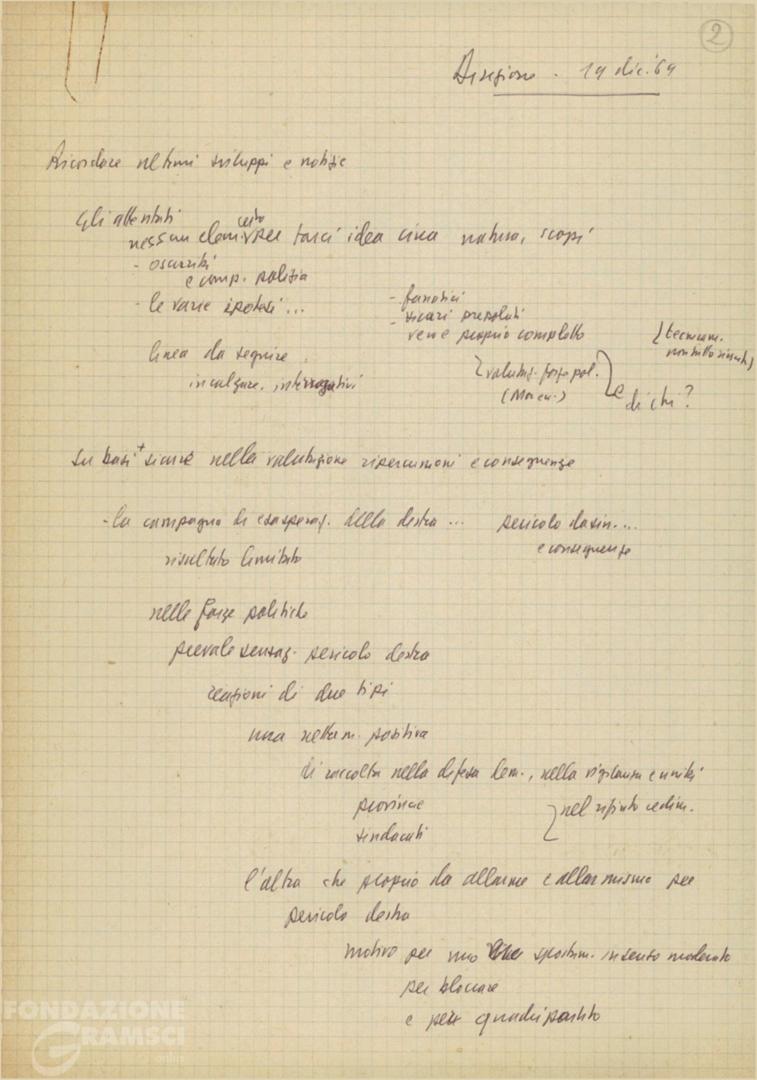 2
Direzione - 19 dic. '69
Ricordare ultimi sviluppi e notizie
Gli attentati
nessun elem. certo per farci idea circa natura, scopi
- oscurità
e comp. polizia
- le varie ipotesi...
- fanatici
- sicari prezzolati
vero e proprio complotto
linea da seguire
incalzare, interrogativi
valutaz. forze pol.
(Moro)
e di chi?
su basi + sicure nella valutazione ripercussioni e conseguenze
- la campagna di esasperaz. della destra... pericolo da sin....
e conseguenze
risultato limitato
nelle forze politiche
prevale sensaz. pericolo destra
reazioni di due tipi
una nettam. positiva
di raccolta nella difesa dem., nella vigilanza e unità
province
sindacati
nel rifiuto cedim.
l'altra che proprio da allarme e allarmismo per
pericolo destra
motivo per uno spostam. in senso moderato
per bloccare
e per quadripartito
FONDAZIONE
GRAMSCI
onlus